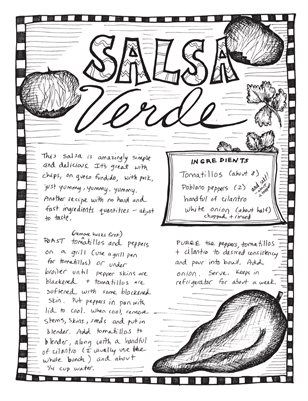 SALSA
Verde
This salsa is amazingly simple
and delicious. It's great with
chips, on queso fundido, with pork,
just yummy, yummy, yummy.
Another recipe with no hard and
fast ingredients quantities - adjust
to taste.
INGREDIENTS
Tomatillos (about 8)
Poblano peppers (2)
handful of cilantro
white onion (about half)
chopped + rinsed
(remove husks first)
ROAST tomatillos and peppers
on a grill (use a grill pan
for tomatillos) or under
broiler until pepper skins are
blackened + tomatillos are
softened, with some blackened
skin. Put peppers in pan with
lid to cool. when cool, remove
stems, skins, seeds and put in
blender. Add tomatillos to
blender, along with a handful
of cilantro (I usually use the
whole bunch) and about
1/4 cup water.
PUREE the peppers, tomatillos
+ cilantro to desired consistency
and pour into bowl. Add
onion. Serve. Keeps in
refrigerator for about a week.